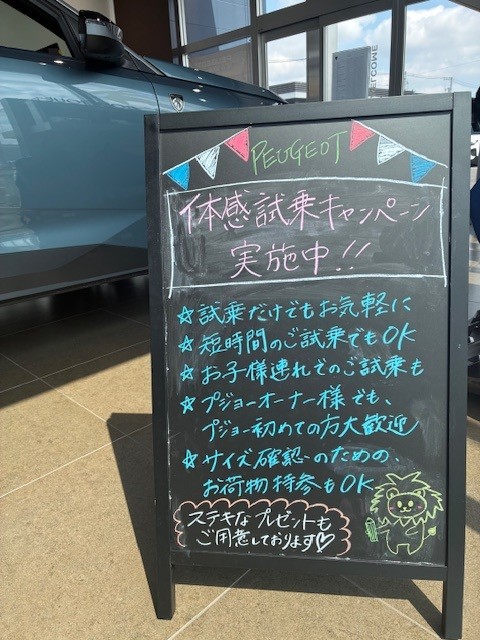 WELCOME
PEUGEOT
体感試乗キャンペーン
実施中!!
☆試乗だけでもお気軽に
☆短時間のご試乗でもOK
☆お子様連れでのご試乗も
☆プジョーオーナー様でも、
プジョー初めての方大歓迎
☆サイズ確認のための、
お荷物持参もOK
ステキなプレゼントも
ご用意しております♡